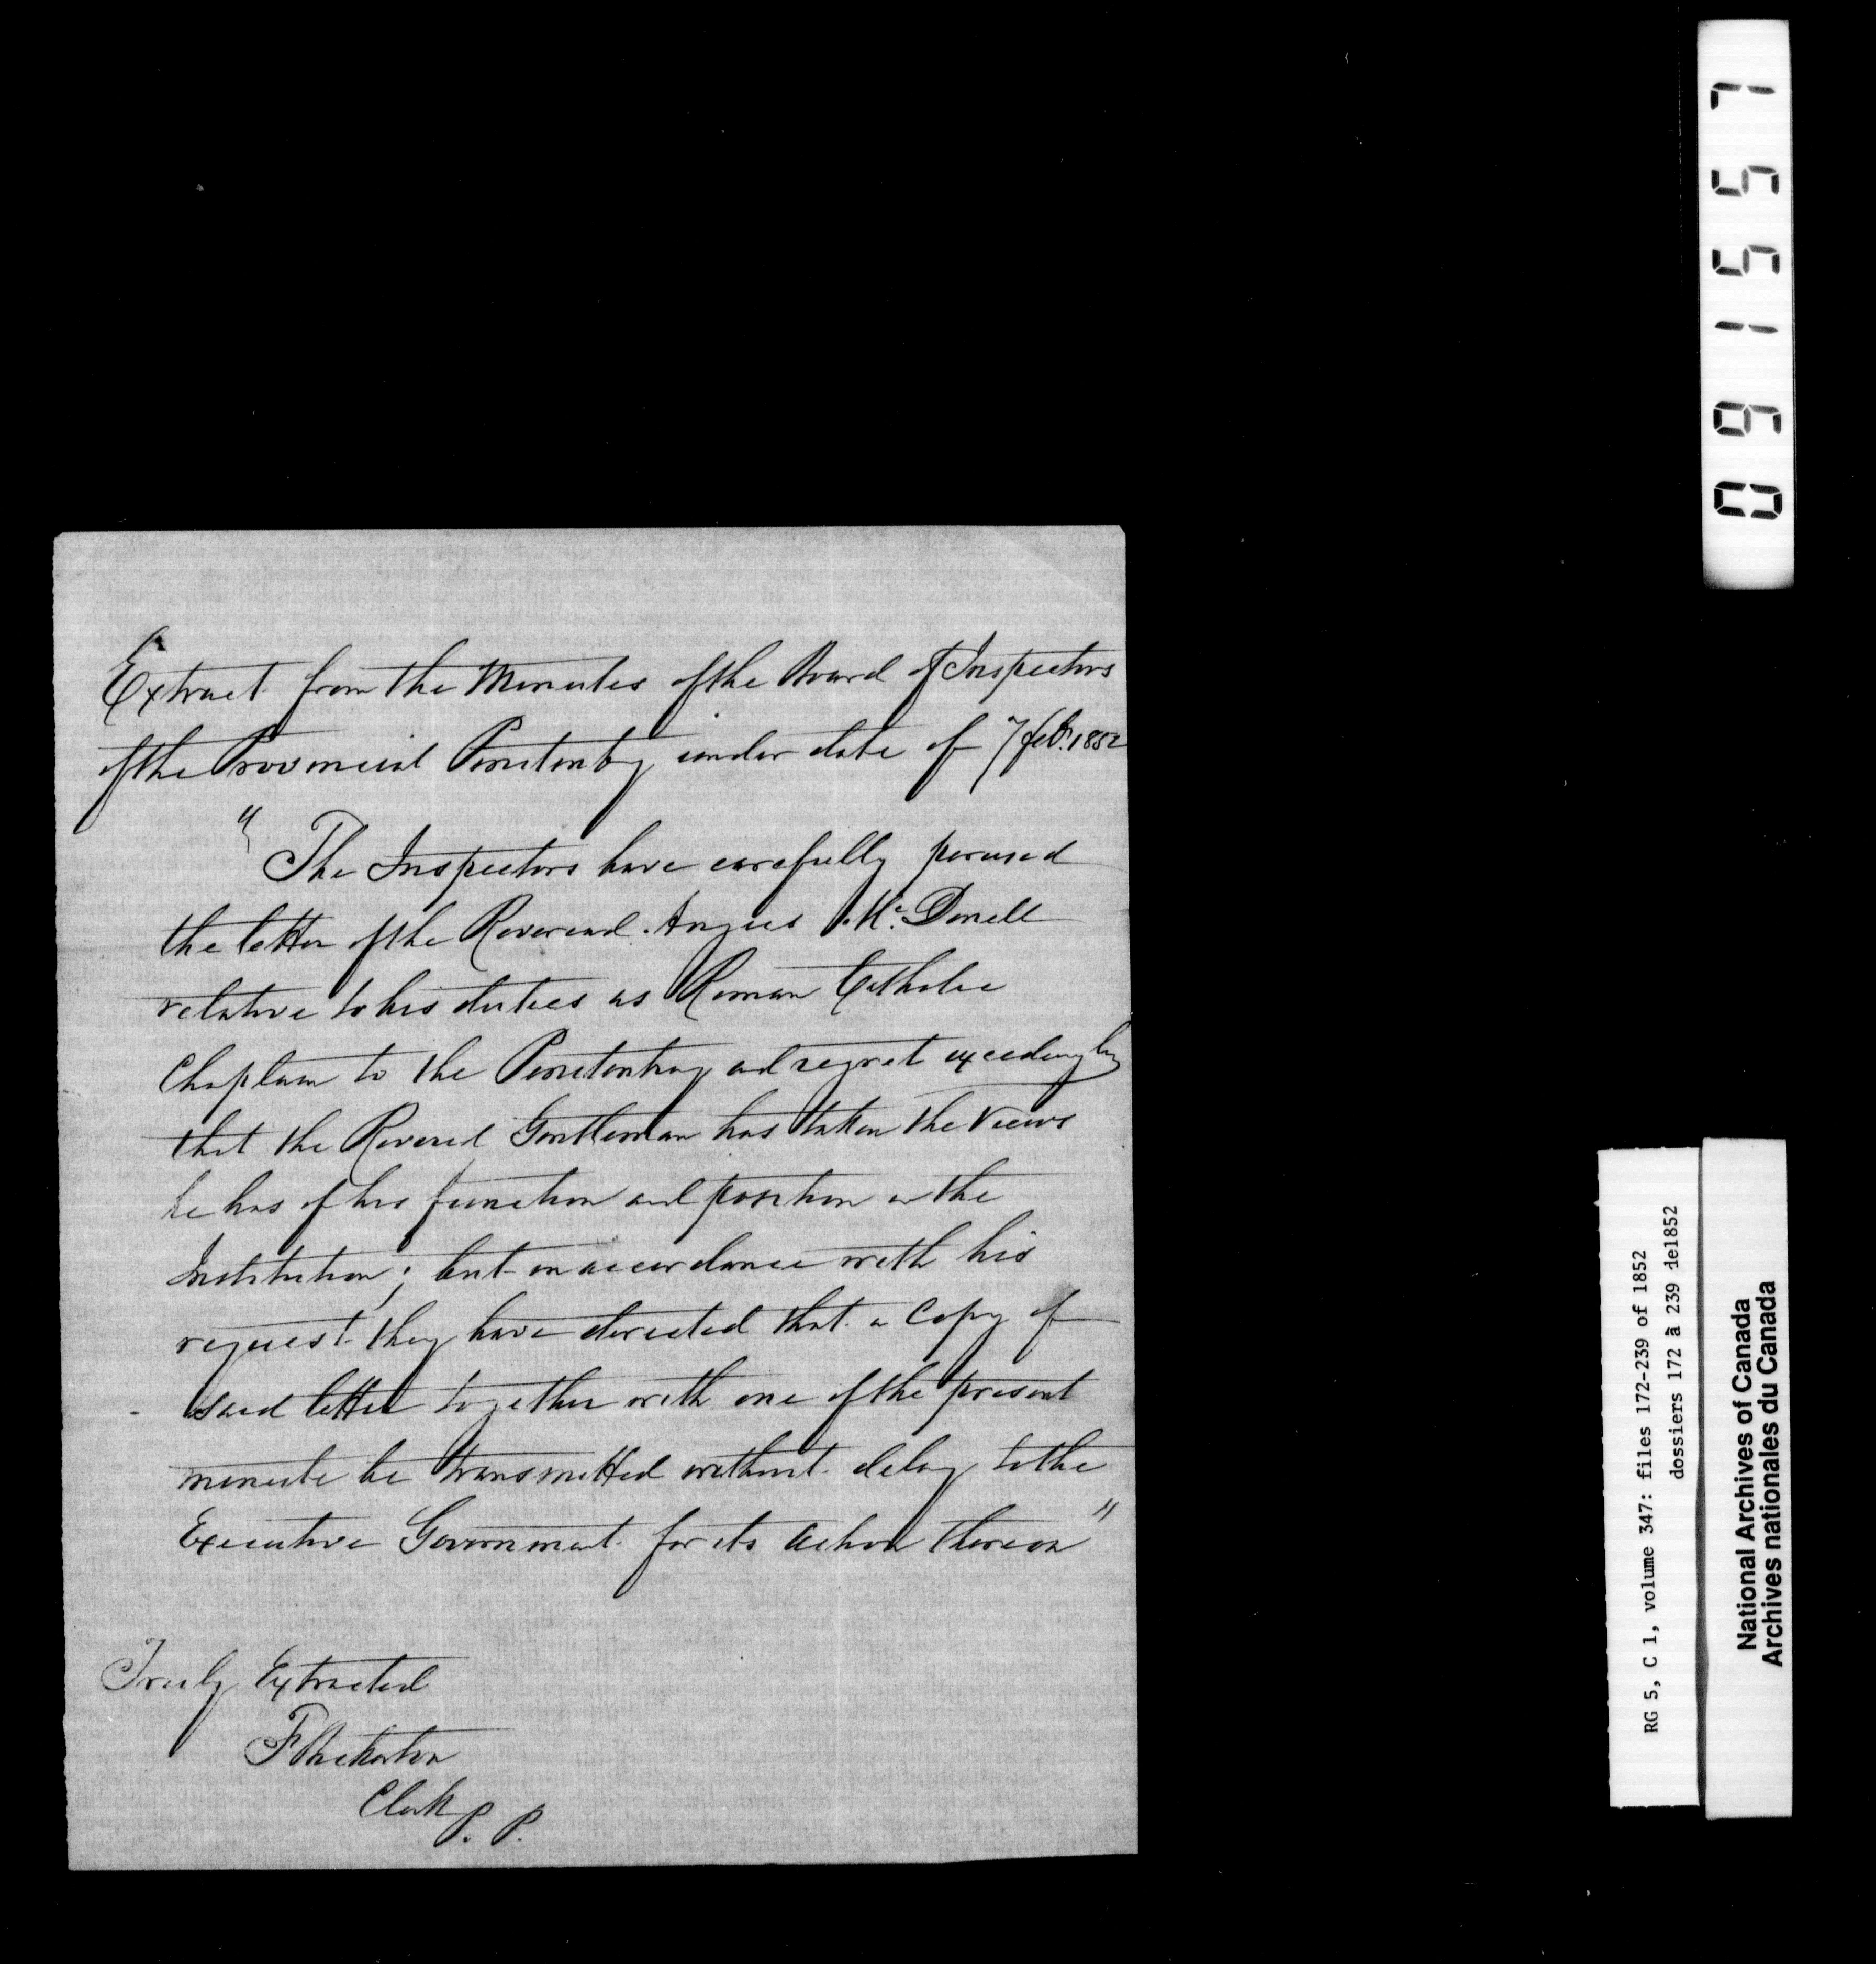 Extract from the Minutes of the Board of Inspectors
of the Provincial Penitentry under date of 7 feby. 1852
" The Inspectors have carefully perused
the letter of the Reverend Angus McDonell
relative to his duties as Roman Catholic
Chaplain to the Penitentiary and regret exceedingly
that the Revered Gentleman has taken the views
he has of his function and position in the
Institution; but in accordance with his
request they have directed that a Copy of
said letter together with one of the present
minute be transmitted without delay to the
Executive Government for its action thereon"
Truly Extracted
F Bickerton
Clerk P. P.
091557
RG 5, C 1, volume 347: files 172-239 of 1852
dossiers 172 à 239 de1852
National Archives of Canada
Archives nationales du Canada